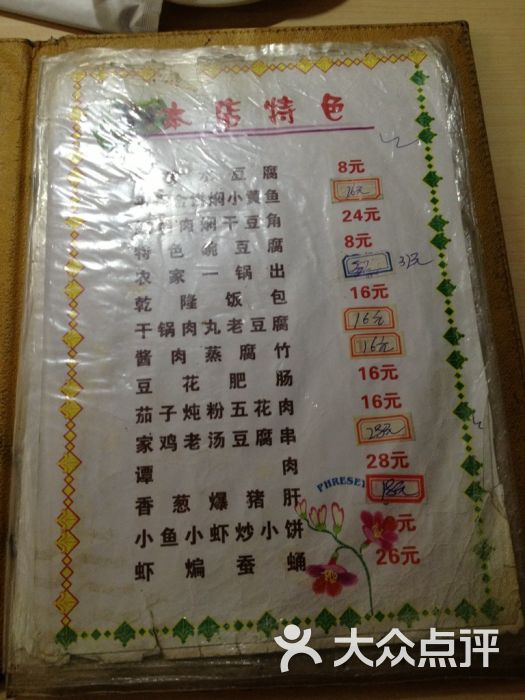 本店特色
水豆腐 8元
饼焖小黄鱼
肉焖干豆角 24元
特色碗豆腐 8元
农家一锅出
乾隆饭包 16元
干锅肉丸老豆腐 16元
酱肉蒸腐竹 16元
豆花肥肠 16元
茄子炖粉五花肉 16元
家鸡老汤豆腐串 28元
谭肉 28元
香葱爆猪肝 18元
小鱼小虾炒小饼 元
虾煸蚕蛹 26元
大众点评